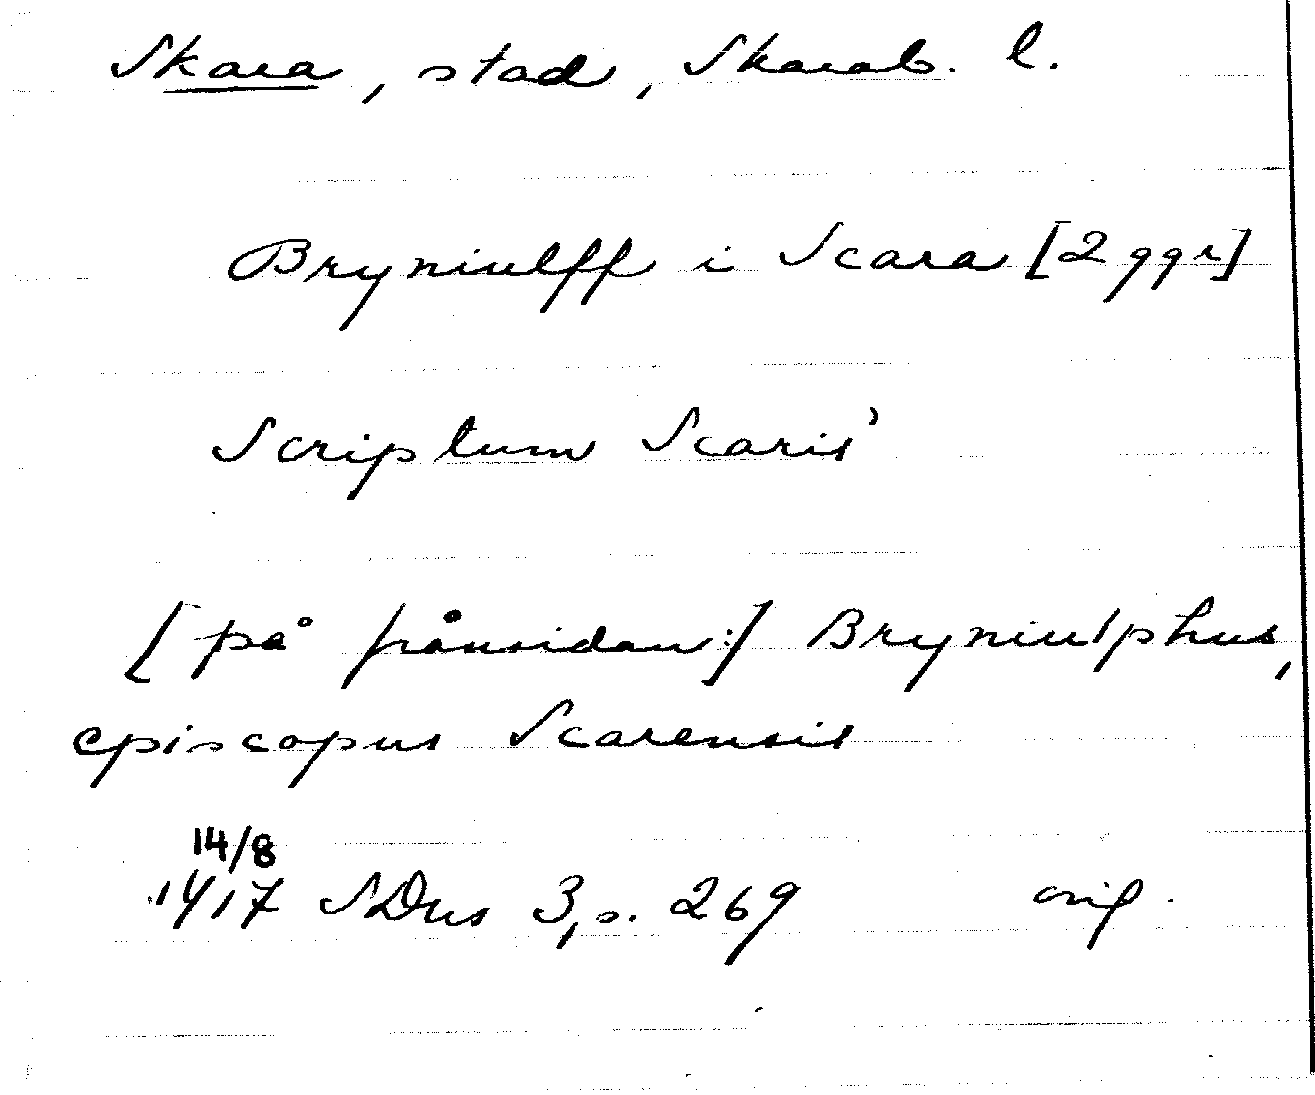 Skara, stad, Skarab. l.
Bryniulff i Scara [2 ggr]
Scriptum Scaris'
[på frånsidan:] Bryniulphus,
episcopus Scarensis
14/8
1417 SDns 3, s. 269 orig.